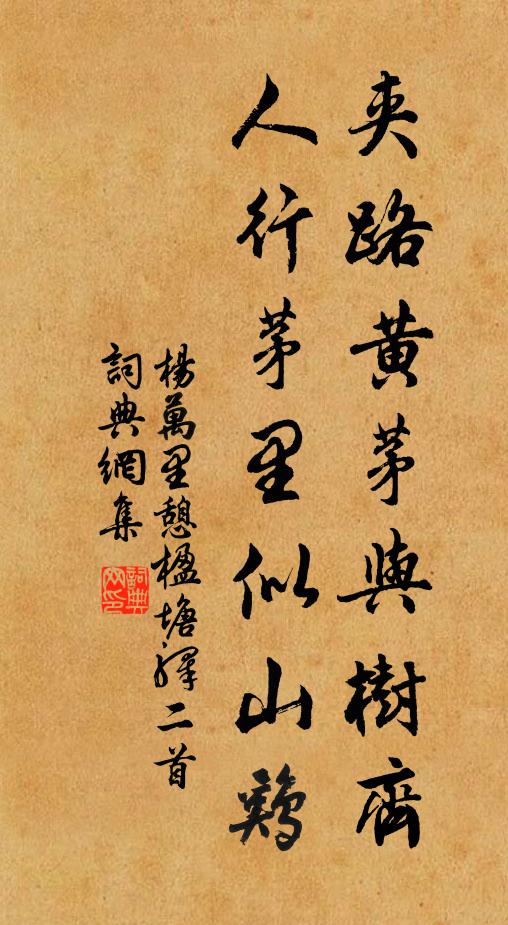 夹路黄茅與樹齊
人行茅里似山鷄
楊萬里憩楹塘驛二首
詞典網集
詞典網印